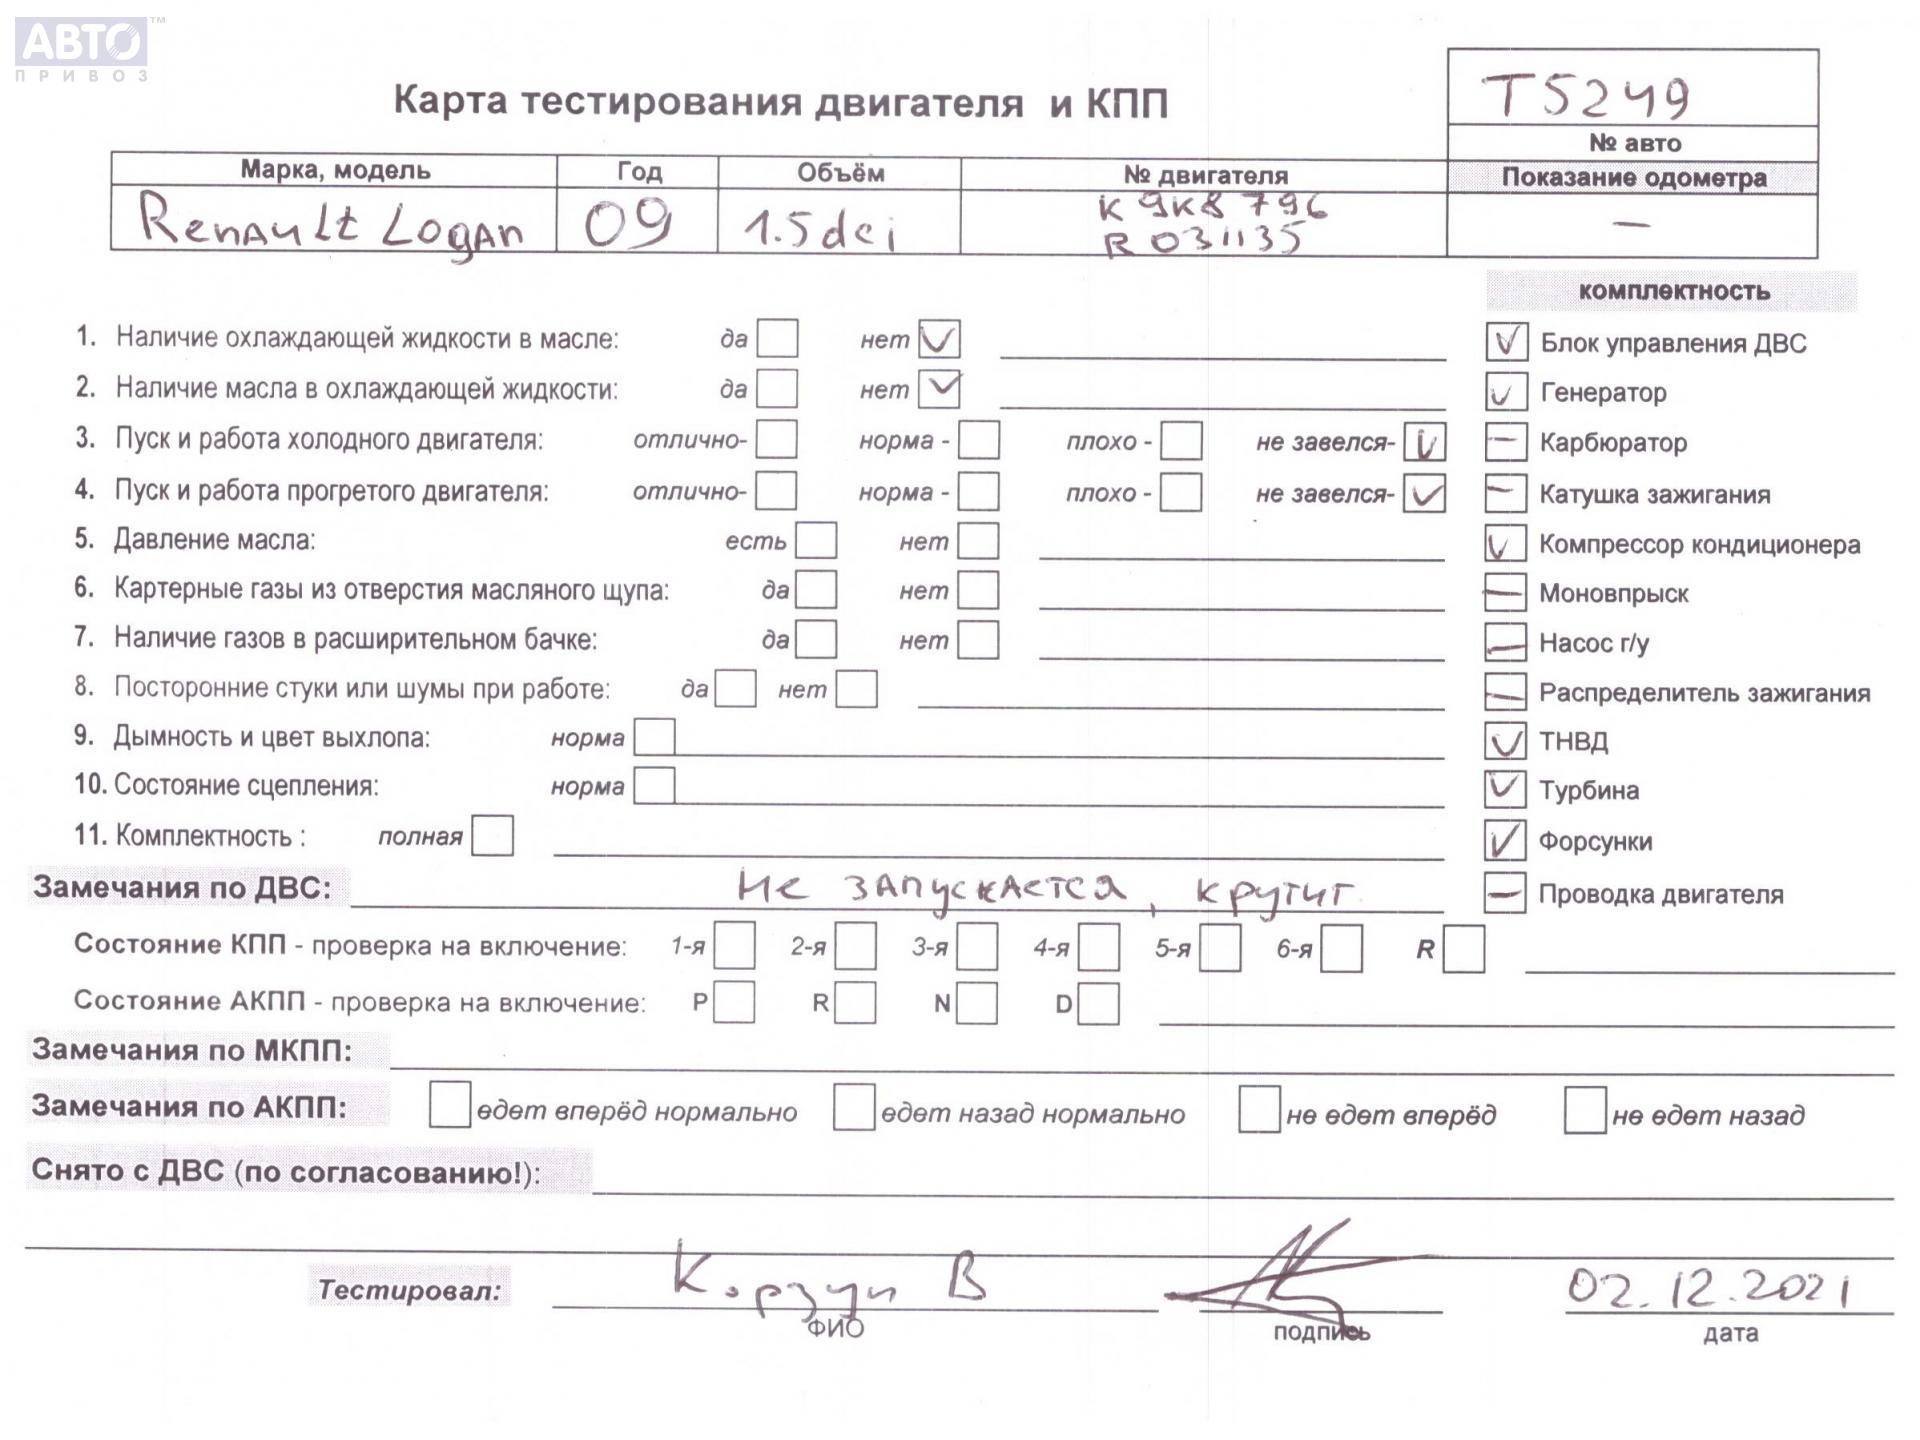 АВТО™
ПРИВОЗ
Карта тестирования двигателя и КПП
T5249
№ авто
Марка, модель Год Объём № двигателя Показание одометра
Renault Logan 09 1.5 dci K9K8 796 —
R031135
комплектность
1. Наличие охлаждающей жидкости в масле: да нет Блок управления ДВС
2. Наличие масла в охлаждающей жидкости: да нет Генератор
3. Пуск и работа холодного двигателя: отлично- норма - плохо - не завелся- Карбюратор
4. Пуск и работа прогретого двигателя: отлично- норма - плохо - не завелся- Катушка зажигания
5. Давление масла: есть нет Компрессор кондиционера
6. Картерные газы из отверстия масляного щупа: да нет Моновпрыск
7. Наличие газов в расширительном бачке: да нет Насос г/у
8. Посторонние стуки или шумы при работе: да нет Распределитель зажигания
9. Дымность и цвет выхлопа: норма ТНВД
10. Состояние сцепления: норма Турбина
11. Комплектность : полная Форсунки
Замечания по ДВС: не запускается, крутит Проводка двигателя
Состояние КПП - проверка на включение: 1-я 2-я 3-я 4-я 5-я 6-я R
Состояние АКПП - проверка на включение: P R N D
Замечания по МКПП:
Замечания по АКПП: едет вперёд нормально едет назад нормально не едет вперёд не едет назад
Снято с ДВС (по согласованию!):
Тестировал: Корзун В 02.12.2021
ФИО подпись дата